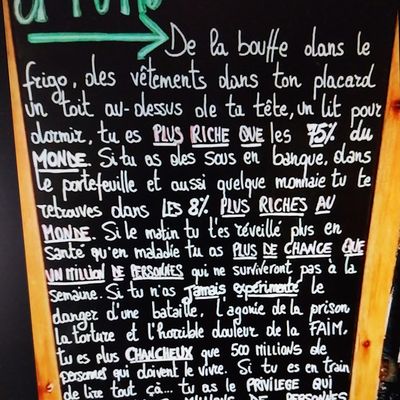 De la bouffe dans le
frigo, des vêtements dans ton placard
un toit au-dessus de ta tête, un lit pour
dormir, tu es PLUS RICHE QUE les 75% du
MONDE. Si tu as des sous en banque, dans
le portefeuille et aussi quelque monnaie tu te
retrouves dans LES 8% PLUS RICHES AU
MONDE. Si le matin tu t'es réveillé plus en
santé qu'en maladie tu as PLUS DE CHANCE QUE
UN MILLION DE PERSONNES qui ne surviveront pas à la
semaine. Si tu n'as Jamais expérimenté le
danger d'une bataille, l'agonie de la prison
la torture et l'horrible douleur de la FAIM,
tu es plus CHANCHEUX que 500 MILLIONS de
personnes qui doivent le vivre. Si tu es en train
de lire tout ça... tu as le PRIVILEGE QUI
MILLIONS DE PERSONNES